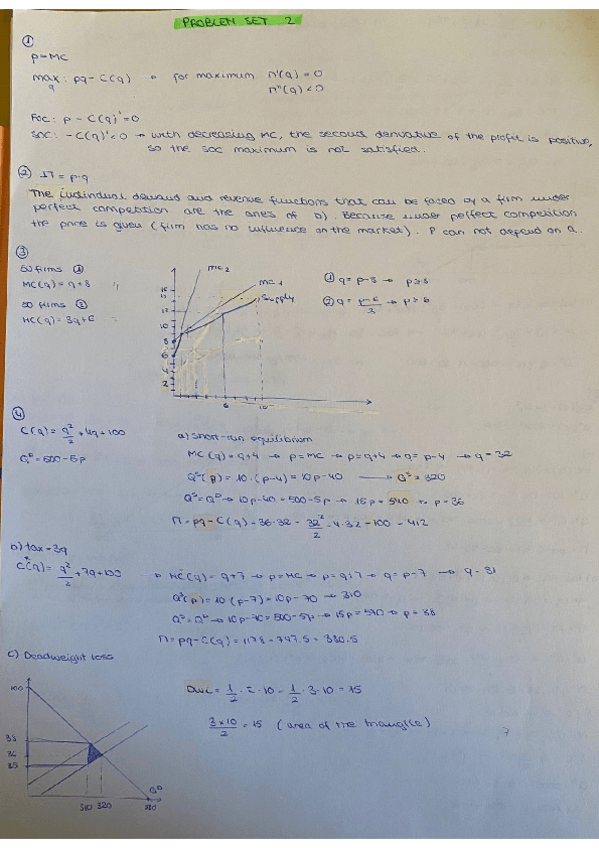 PROBLEM SET 2
①
p=MC
max q : pq - C(q) for maximum π'(q) = 0
π''(q) < 0
FOC: p - C(q)' = 0
SOC: -C(q)'' < 0 → with decreasing MC, the second derivative of the profit is positive,
so the SOC maximum is not satisfied.
② IT = p·q
The individual demand and revenue functions that can be faced by a firm under
perfect competition are the ones of b). Because under perfect competition
the price is given (firm has no influence on the market). P can not depend on Q.
③
50 firms ①
MC(q) = q+8
50 firms ②
MC(q) = 3q+6
MC2
MC1
Supply
16
12
10
8
6
2
6 10
① q = p-8 → p≥8
② q = p-6/3 → p≥6
④
C(q) = q²/2 + 4q + 100
Q^D = 500 - 5p
a) Short-run equilibrium
MC(q) = q+4 → p=MC → p=q+4 → q=p-4 → q=32
Q^S(p) = 10·(p-4) = 10p-40 → Q^S = 320
Q^S = Q^D → 10p-40 = 500-5p → 15p = 540 → p=36
π = pq - C(q) = 36·32 - 32²/2 - 4·32 - 100 = 412
b) tax = 3q
C(q) = q²/2 + 7q + 100
→ MC(q) = q+7 → p=MC → p=q+7 → q=p-7 → q=31
Q^S(p) = 10(p-7) = 10p-70 → 310
Q^S = Q^D → 10p-70 = 500-5p → 15p = 570 → p=38
π = pq - C(q) = 1178 - 797.5 = 380.5
c) Deadweight loss
DWL = 1/2 · 10 = 1/2 · 3·10 = 15
3×10/2 = 15 (area of the triangle)
100
38
36
35
310 320
Q^D